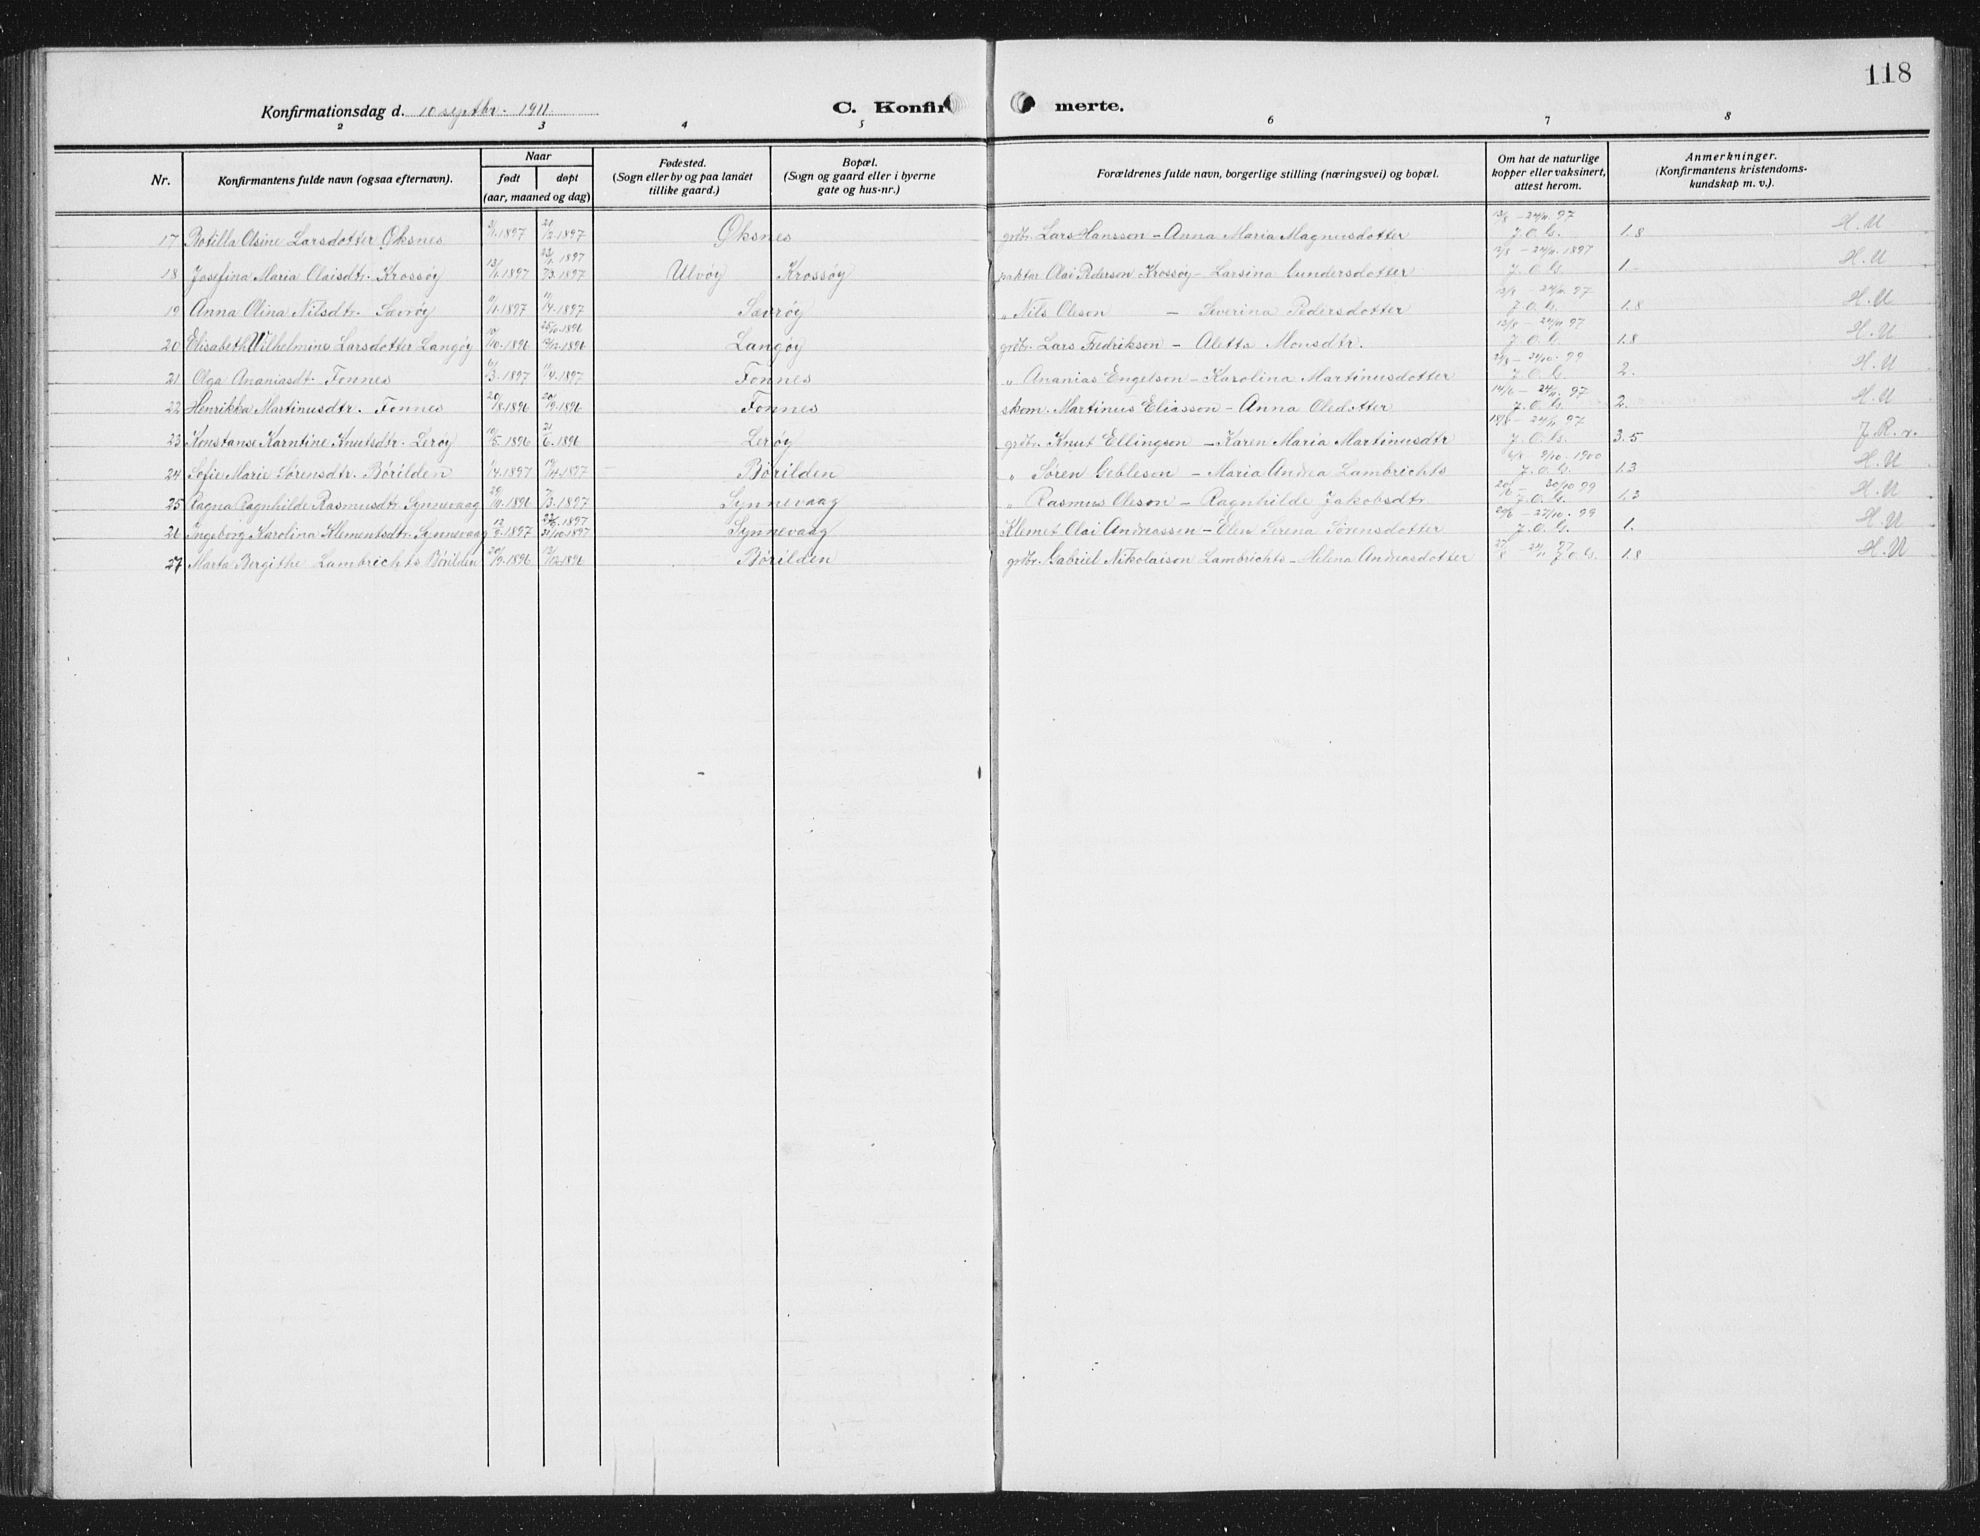 118
Konfirmationsdag d. 10 septbr. 1911. C. Konfirmerte.
2 3 4 5 6 7 8
Nr. Konfirmantens fulde navn (ogsaa efternavn). Naar født døpt (aar, maaned og dag) Fødested. (Sogn eller by og paa landet tillike gaard.) Bopæl. (Sogn og gaard eller i byerne gate og hus-nr.) Forældrenes fulde navn, borgerlige stilling (næringsvei) og bopæl. Om hat de naturlige kopper eller vaksinert, attest herom. Anmerkninger. (Konfirmantens kristendoms-kundskap m. v.).
17 Botilla Olsine Larsdotter Øksnes 1897 1897 Øksnes grdbr. Lars Hansson - Anna Maria Magnusdotter 24/11. 97 J. O. G. 1.8 H. U
18 Josefina Maria Olaisdtr. Krossøy 1897 1897 Ulvøy Krossøy paktar Olai Pederson Krossøy - Larsina Gundersdotter 24/11. 1897 J. O. G. 1. H. U
19 Anna Olina Nilsdtr. Sævrøy 1897 1897 Sævrøy " Nils Oleson - Severina Pedersdotter 24/11. 97 J. O. G. 1.8 H. U
20 Elisabeth Wilhelmine Larsdotter Langøy 1896 1896 Langøy grdbr. Lars Fredrikson - Aletta Monsdtr. 24/11. 97 J. O. G. 1.8 H. U
21 Olga Ananiasdt. Fonnes 1897 1897 Fonnes " Ananias Engelson - Karolina Martinusdotter 24/10. 99 J. O. G. 2. H. U
22 Henrikka Martinusdtr. Fonnes 1896 1896 Fonnes skom. Martinus Eliasson - Anna Oledotter 24/11. 97 J. O. G. 2. H. U
23 Konstanse Karntine Knutsdtr. Lerøy 1896 1896 Lerøy grdbr. Knut Ellingson - Karen Maria Martinusdtr 24/11 97 J. O. G. 3.5
24 Sofie Marie Sørensdtr. Børilden 1897 1897 Børilden " Søren Gebleson - Maria Andrea Lambrichts 9/10. 1900 J. O. G. 1.3 H. U
25 Ragna Ragnhilde Rasmusdtr Synnevaag 1896 1897 Synnevaag " Rasmus Oleson - Ragnhilde Jakobsdtr. 20/10 99 J. O. G. 1.3 H. U
26 Ingeborg Karolina Klementsdtr. Synnevaag 1897 1897 Synnevaag Klemet Olai Andreassen - Elen Serena Sørensdotter 27/10. 99 J. O. G. 1. H. U
27 Marta Bergithe Lambrichts Børilden 1896 1896 Børilden grdbr. Gabriel Nikolaison Lambrichts - Helena Andreasdotter 97 J. O. G. 1.8 H. U